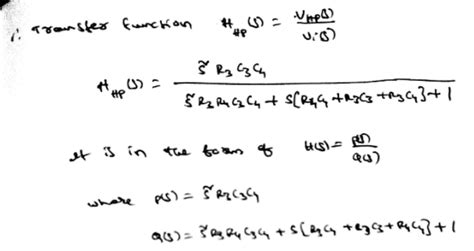 ∴ Transfer function H_HP(s) = V_HP(s) / V_i(s)
H_HP(s) = s² R3 C3 C4 / s² R3 R4 C3 C4 + s[R4 C4 + R3 C3 + R3 C4] + 1
It is in the form of H(s) = P(s) / Q(s)
where P(s) = s² R3 C3 C4
Q(s) = s² R3 R4 C3 C4 + s[R3 C4 + R3 C3 + R4 C4] + 1